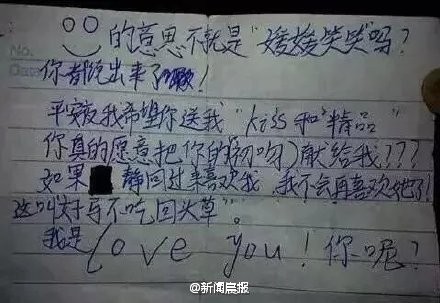 的意思不就是“媛媛笑笑”吗？
No.
Date
你都说出来了嗷！
平安夜我希望你送我“kiss和“精品”
你真的愿意把你的(初吻)献给我？？？
如果 静回过来喜欢我，我不会再喜欢她了！
这叫好马不吃回头草“。
我是love you！你呢？
@新闻晨报